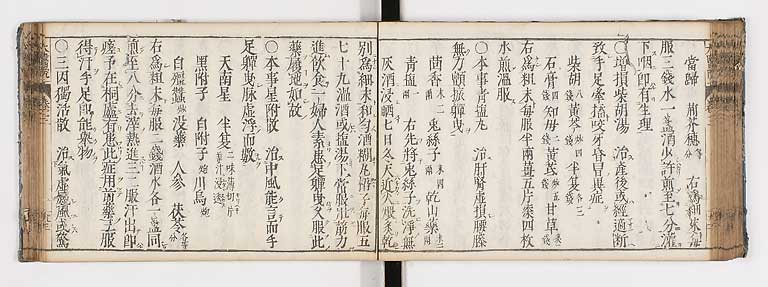 當歸 荊芥穗 右爲細末每
服三錢水一盞酒少許煎至七分灌
下咽即有生理
○增損柴胡湯 治產後或經適斷
致手足牽搐咬牙昏冒異症
柴胡 黃芩 半夏
石膏 知母 黃芪 甘草
右爲粗末每服半兩薑五片棗四枚
水煎溫服
○本事青塩丸 治肝腎虛損腰膝
無力顫振嚲曳
茴香 兎絲子 乾山藥
青塩 右先將兎絲子洗淨無
灰酒浸晒七日冬天近火煨末乾
別爲細末和勻酒糊丸梧子每服五
七十九溫酒或塩湯下常服壯筋力
進飲食一婦人素患足嚲曳久服此
藥履地如故
○本事星附散 治中風能言而手
足嚲曳脉虛浮而數
天南星 半夏
黑附子 白附子 川烏
白殭蠶 没藥 人參 茯苓
右爲粗末每服二錢酒水各一盞同
煎至八分去滓熱進二三服汗出即
瘥予在桐廬有患此症用前藥三服
得汗手足即能舉物
○三因獨活散 治氣虛感風或驚